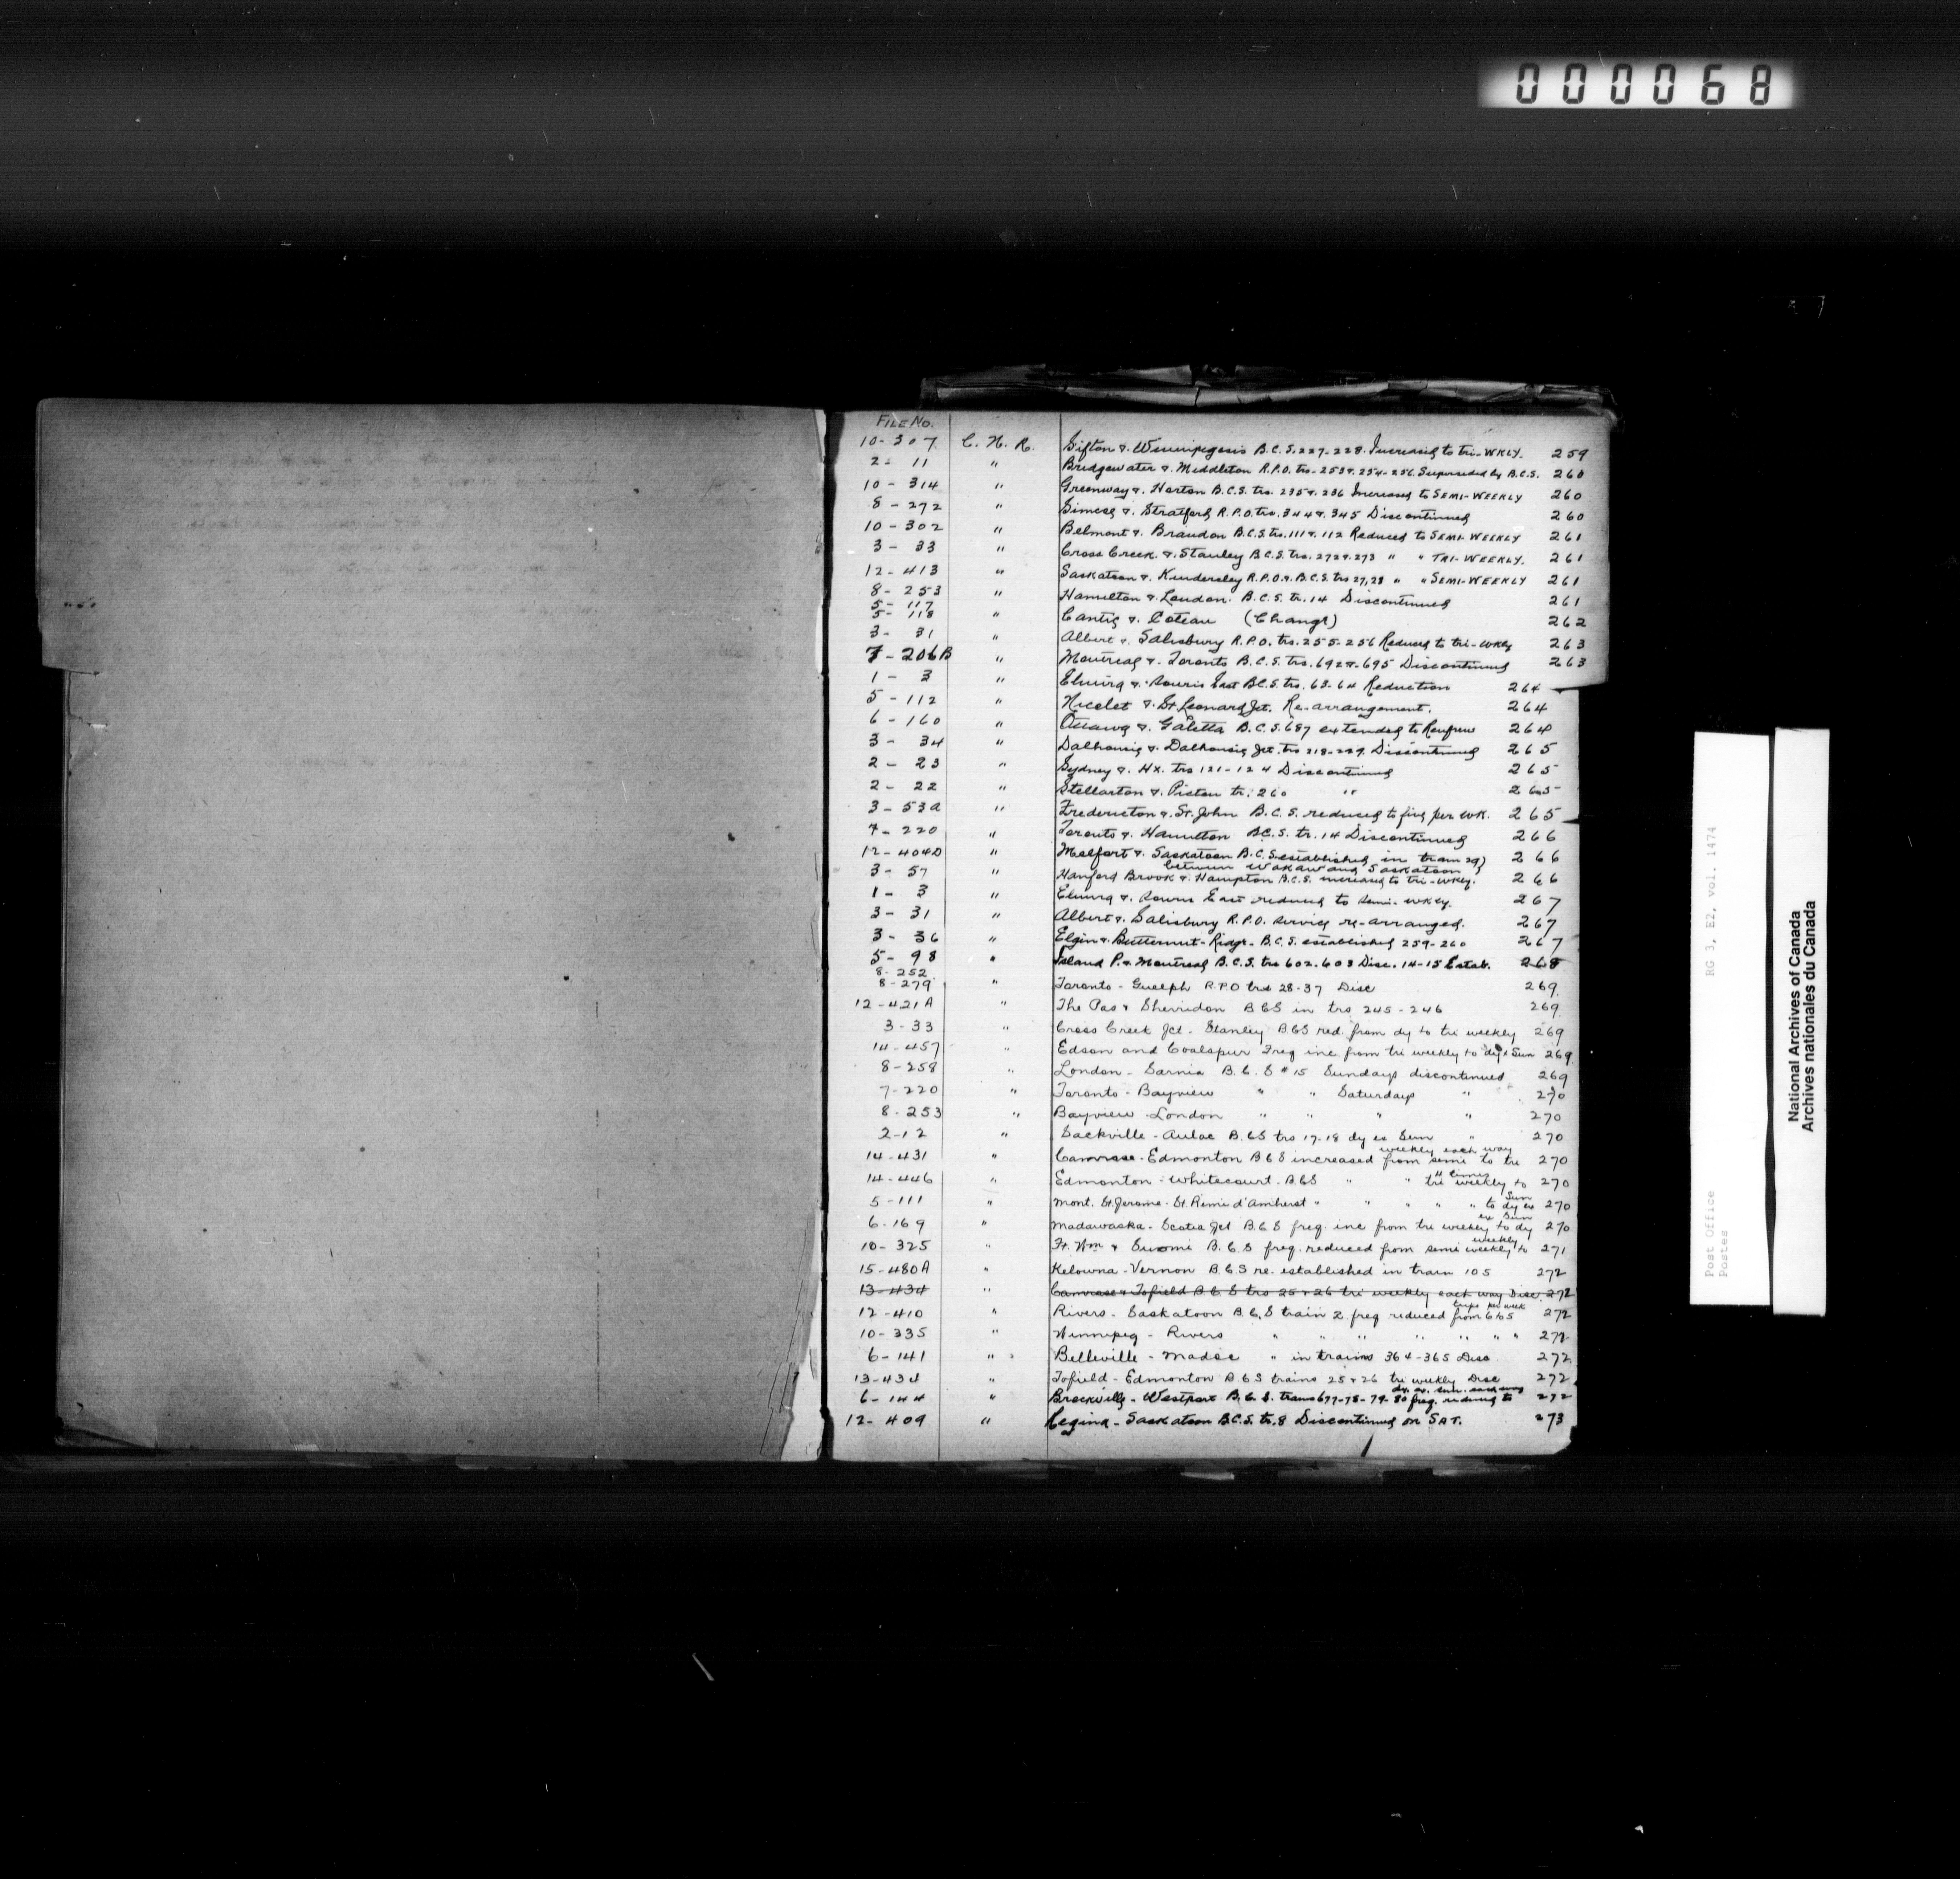 000068
FILE No.
10-307 C. N. R. Sifton & Winnipegosis B.C.S. 227-228. Increased to tri-WKLY. 259
2-11 " Bridgewater & Middleton R.P.O. trs-253 & 254-256 Superseded by B.C.S. 260
10-314 " Greenway & Horton B.C.S. trs. 235 & 236 Increased to SEMI-WEEKLY 260
8-272 " Simcoe & Stratford R.P.O. trs. 344 & 345 Discontinued 260
10-302 " Belmont & Brandon B.C.S. trs. 111 & 112 Reduced to SEMI-WEEKLY 261
3-33 " Cross Creek & Stanley B.C.S. trs. 272 & 273 " " TRI-WEEKLY. 261
12-413 " Saskatoon & Kindersley R.P.O. & B.C.S. trs 27, 28 " " SEMI-WEEKLY 261
8-253 " Hamilton & London. B.C.S. tr. 14 Discontinued 261
5-117
5-118 " Cantic & Coteau (Change) 262
3-31 " Albert & Salisbury R.P.O. trs. 255-256 Reduced to tri-wkly 263
7-206B " Montreal & Toronto B.C.S. trs. 692 & 695 Discontinued 263
1-3 " Elmira & Souris East B.C.S. trs. 63-64 Reduction 264
5-112 " Nicolet & St. Leonard Jct. Re-arrangement. 264
6-160 " Ottawa & Galetta B.C.S. 687 extended to Renfrew 264
3-34 " Dalhousie & Dalhousie Jct. trs 218-229. Discontinued 265
2-23 " Sydney & Hx. trs 121-124 Discontinued 265
2-22 " Stellarton & Pictou tr. 260 " 265
3-53A " Fredericton & St. John B.C.S. reduced to five per wk. 265
7-220 " Toronto & Hamilton B.C.S. tr. 14 Discontinued 266
12-404D " Melfort & Saskatoon B.C.S. established in tram 29) 266
between Wakaw and Saskatoon )
3-57 " Hanford Brook & Hampton B.C.S. increased to tri-wkly. 266
1-3 " Elmira & Souris East reduced to semi-wkly. 267
3-31 " Albert & Salisbury R.P.O. service re-arranged. 267
3-36 " Elgin & Butternut-Ridge-B.C.S. established 259-260 267
5-98 " Island P. & Montreal B.C.S. trs 602-603 Disc. 14-15 Estab. 268
8-252
8-279 " Toronto - Guelph R.P.O trs 28-37 Disc 269.
12-421A " The Pas & Sherridon BCS in trs 245-246 269.
3-33 " Cross Creek Jct - Stanley BCS red. from dy to tri weekly 269
14-457 " Edson and Coalspur Freq inc from tri weekly to dy x Sun 269.
8-258 " London - Sarnia B.C.S # 15 Sundays discontinued 269
7-220 " Toronto - Bayview " " Saturdays " 270
8-253 " Bayview - London " " " " 270
2-12 " Sackville - Aulac B.C.S trs 17-18 dy ex Sun " 270
weekly each way
14-431 " Camrose - Edmonton BCS increased from semi to tri 270
" times
14-446 " Edmonton - Whitecourt. BCS " " tri weekly to 270
Sun
5-111 " Mont. St Jerome - St. Remi d'Amherst " " " " to dy ex 270
ex Sun
6-169 " Madawaska - Scotia Jct B.C.S freq. inc from tri weekly to dy 270
weekly
10-325 " Ft. Wm & Suomi B.C.S freq. reduced from semi weekly to 271
15-480A " Kelowna - Vernon B.C.S re. established in train 105 272
13-434 " Camrose & Tofield B.C.S trs 25 & 26 tri weekly each way Disc. 272
trips per week
12-410 " Rivers - Saskatoon B.C.S train 2 freq reduced from 6 to 5 272
10-335 " Winnipeg - Rivers " " " " " " " 272
6-141 " Belleville - Madoc " in trains 364-365 Disc 272
13-434 " Tofield - Edmonton B.C.S trains 25 & 26 tri weekly Disc 272
dy. ex. sun. each way
6-144 " Brockville - Westport B.C.S. trains 677-78-79-80 freq. reduced to 272
12-409 " Regina - Saskatoon B.C.S. tr. 8 Discontinued on SAT. 273
Post Office RG 3, E2, vol. 1474
Postes
National Archives of Canada
Archives nationales du Canada